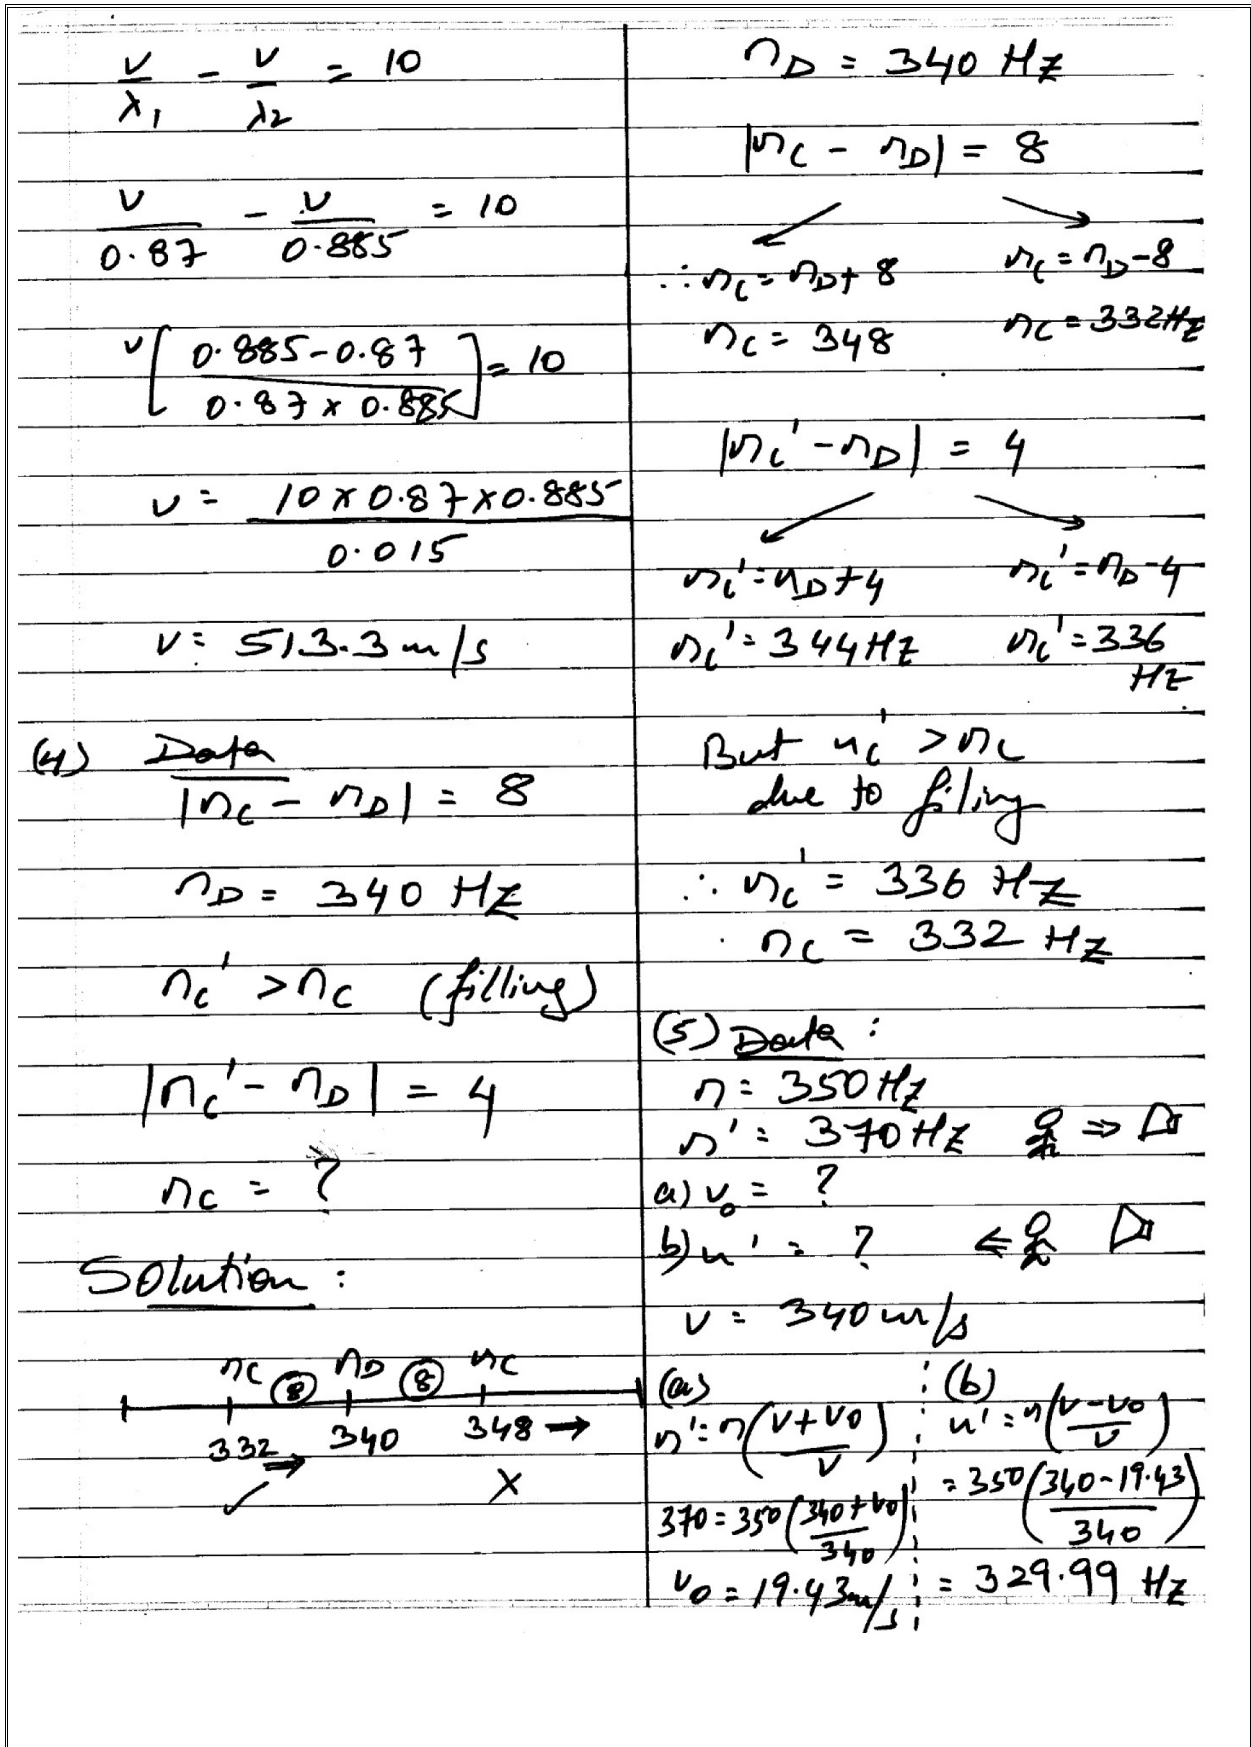 v/λ1 - v/λ2 = 10
v/0.87 - v/0.885 = 10
v[(0.885-0.87)/(0.87 x 0.885)] = 10
v = (10 x 0.87 x 0.885)/0.015
v = 513.3 m/s
(4) Data
|nC - nD| = 8
nD = 340 Hz
nC' > nC (filling)
|nC' - nD| = 4
nC = ?
Solution :
nC 8 nD 8 nC
332 → 340 348 →
✓ X
nD = 340 Hz
|nC - nD| = 8
∴ nC = nD + 8 nC = nD - 8
nC = 348 nC = 332Hz
|nC' - nD| = 4
nC' = nD + 4 nC' = nD - 4
nC' = 344Hz nC' = 336
Hz
But nC' > nC
due to filing
∴ nC' = 336 Hz
. nC = 332 Hz
(5) Data :
n = 350Hz
n' = 370Hz ⇒
a) vo = ?
b) n' = ? ⇐
v = 340 m/s
(a) (b)
n' = n((v + vo)/v) n' = n((v - vo)/v)
370 = 350((340 + vo)/340) = 350((340 - 19.43)/340)
vo = 19.43m/s = 329.99 Hz